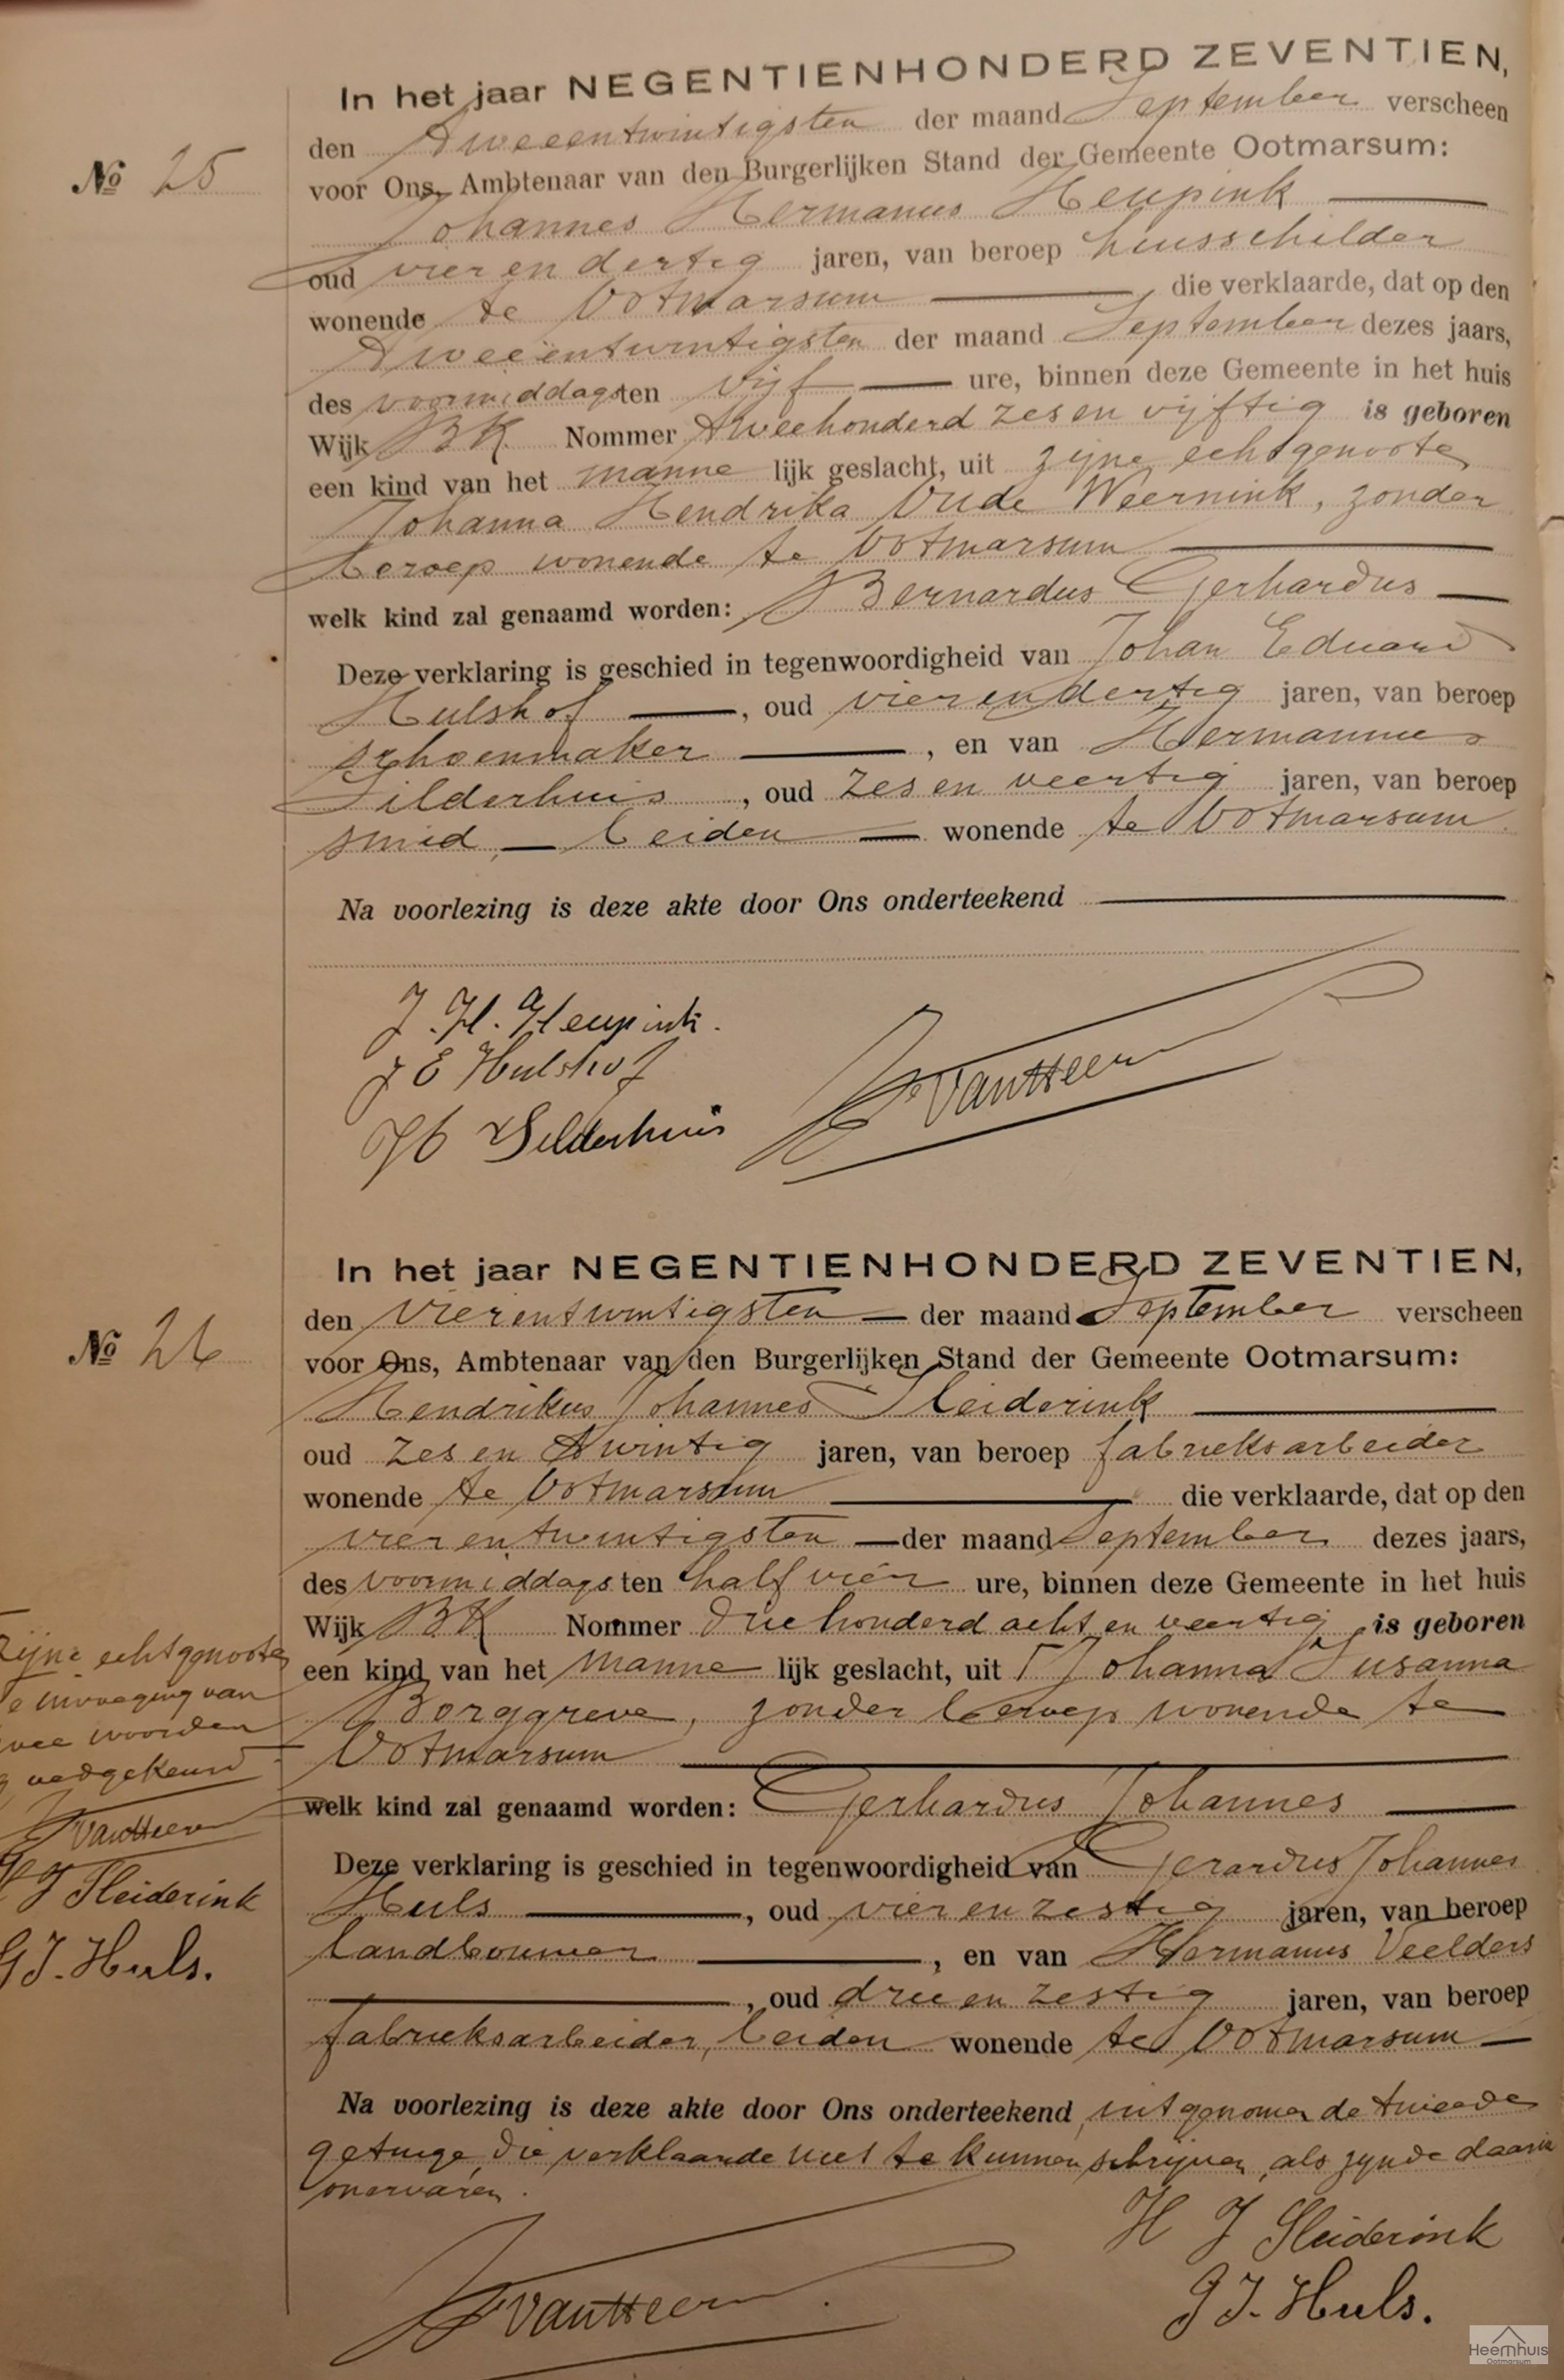 In het jaar NEGENTIENHONDERD ZEVENTIEN,
den Tweeentwintigsten der maand September verscheen
№ 25
voor Ons, Ambtenaar van den Burgerlijken Stand der Gemeente Ootmarsum:
Johannes Hermanus Heupink
oud vier en dertig jaren, van beroep huisschilder
wonende te Ootmarsum die verklaarde, dat op den
Tweeëntwintigsten der maand September dezes jaars,
des voormiddags ten vijf ure, binnen deze Gemeente in het huis
Wijk BK Nommer Tweehonderd zes en vijftig is geboren
een kind van het manne lijk geslacht, uit zijne echtgenoote
Johanna Hendrika Oude Weernink, zonder
beroep wonende te Ootmarsum
welk kind zal genaamd worden: Bernardus Gerhardus
Deze verklaring is geschied in tegenwoordigheid van Johan Eduard
Hulshof, oud vierendertig jaren, van beroep
schoenmaker, en van Hermannus
Silderhuis, oud zes en veertig jaren, van beroep
smid, beiden wonende te Ootmarsum
Na voorlezing is deze akte door Ons onderteekend
J. H. Heupink.
J E Hulshof
H Silderhuis
VantHeen
In het jaar NEGENTIENHONDERD ZEVENTIEN,
den vierentwintigsten der maand September verscheen
№ 26
voor Ons, Ambtenaar van den Burgerlijken Stand der Gemeente Ootmarsum:
Hendrikus Johannes Sleiderink
oud zes en twintig jaren, van beroep fabrieksarbeider
wonende te Ootmarsum die verklaarde, dat op den
vier en twintigsten der maand September dezes jaars,
des voormiddags ten half vier ure, binnen deze Gemeente in het huis
Wijk BK Nommer driehonderd acht en veertig is geboren
een kind van het manne lijk geslacht, uit Γ Johanna Susanna
Borggreve, zonder beroep wonende te
Ootmarsum
welk kind zal genaamd worden: Gerhardus Johannes
Deze verklaring is geschied in tegenwoordigheid van Gerardus Johannes
Huls, oud vier en zestig jaren, van beroep
landbouwer, en van Hermanus Veelders
, oud drie en zestig jaren, van beroep
fabrieksarbeider, beiden wonende te Ootmarsum
Na voorlezing is deze akte door Ons onderteekend, uitgenomen de tweede
getuige, die verklaarde niet te kunnen schrijven, als zijnde daarin
onervaren.
zijne echtgenoote
e invoeging van
wee woorden
goedgekeurd
VantHeen
H J Sleiderink
GJ. Huls.
H J Sleiderink
VantHeen
GJ. Huls.
Heemhuis
Ootmarsum